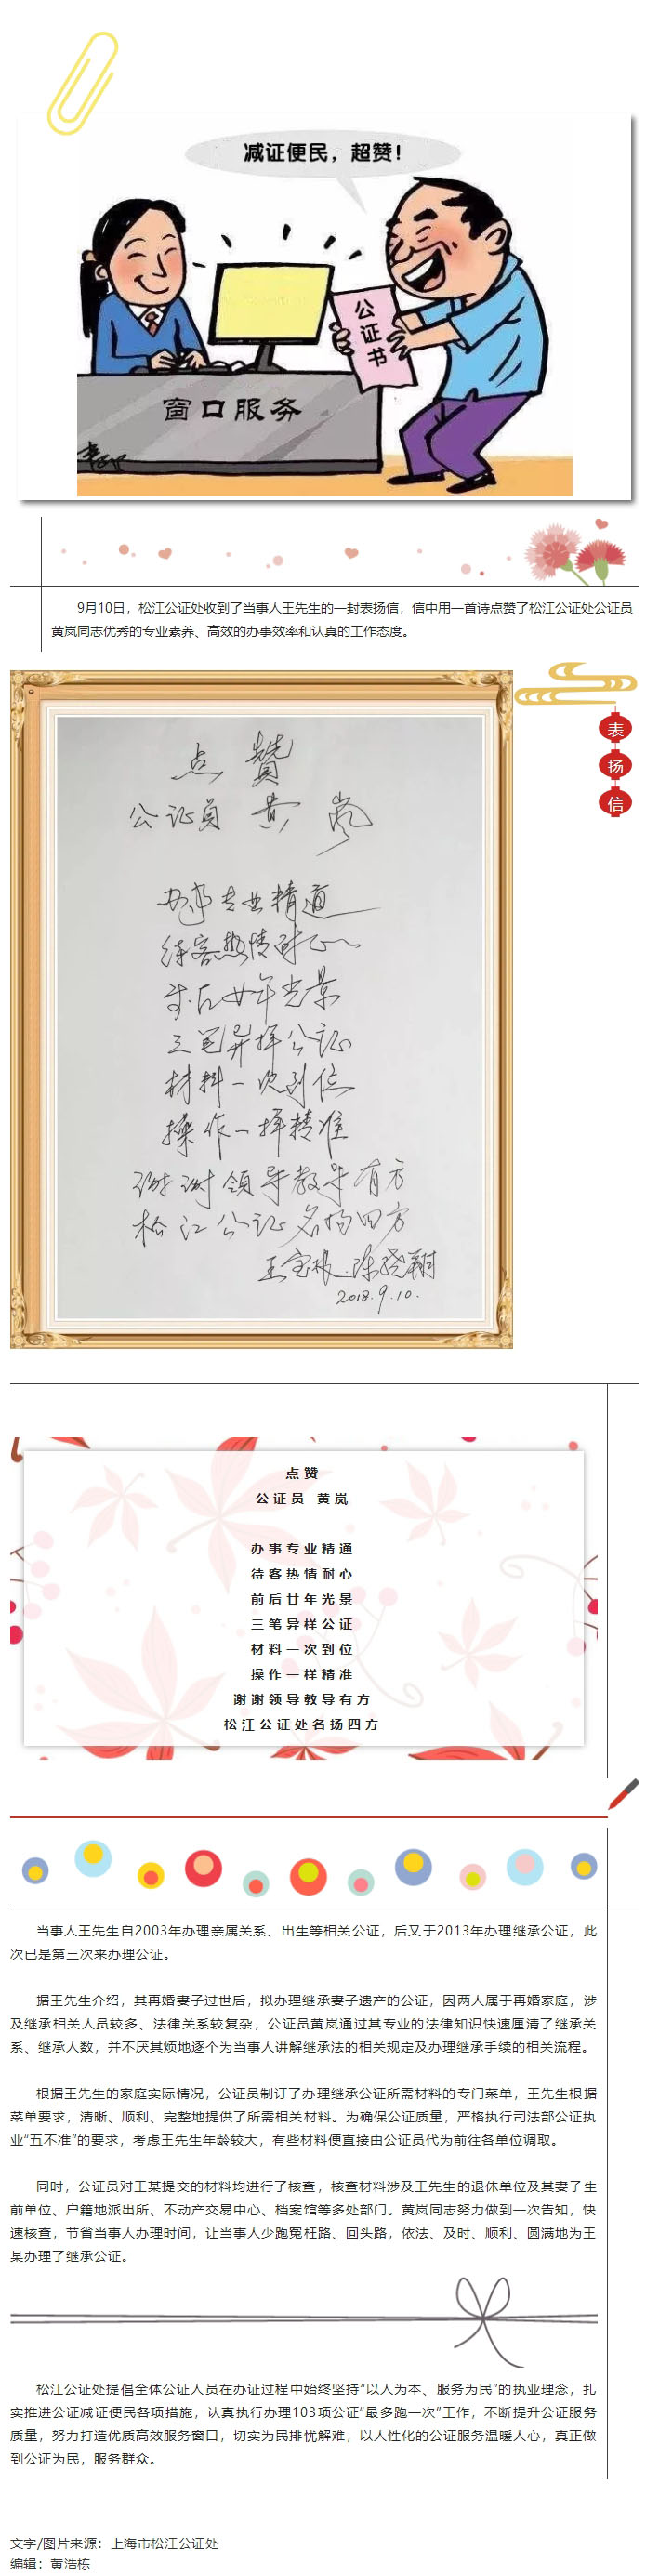 减证便民，超赞！
公证书
窗口服务
9月10日，松江公证处收到了当事人王先生的一封表扬信，信中用一首诗点赞了松江公证处公证员
黄岚同志优秀的专业素养、高效的办事效率和认真的工作态度。
表
扬
信
点赞
公证员 黄岚
办事专业精通
待客热情耐心
前后廿年光景
三笔异样公证
材料一次到位
操作一样精准
谢谢领导教导有方
松江公证名扬四方
2018.9.10.
点赞
公证员 黄岚
办事专业精通
待客热情耐心
前后廿年光景
三笔异样公证
材料一次到位
操作一样精准
谢谢领导教导有方
松江公证处名扬四方
当事人王先生自2003年办理亲属关系、出生等相关公证，后又于2013年办理继承公证，此
次已是第三次来办理公证。
据王先生介绍，其再婚妻子过世后，拟办理继承妻子遗产的公证，因两人属于再婚家庭，涉
及继承相关人员较多、法律关系较复杂，公证员黄岚通过其专业的法律知识快速厘清了继承关
系、继承人数，并不厌其烦地逐个为当事人讲解继承法的相关规定及办理继承手续的相关流程。
根据王先生的家庭实际情况，公证员制订了办理继承公证所需材料的专门菜单，王先生根据
菜单要求，清晰、顺利、完整地提供了所需相关材料。为确保公证质量，严格执行司法部公证执
业“五不准”的要求，考虑王先生年龄较大，有些材料便直接由公证员代为前往各单位调取。
同时，公证员对王某提交的材料均进行了核查，核查材料涉及王先生的退休单位及其妻子生
前单位、户籍地派出所、不动产交易中心、档案馆等多处部门。黄岚同志努力做到一次告知，快
速核查，节省当事人办理时间，让当事人少跑冤枉路、回头路，依法、及时、顺利、圆满地为王
某办理了继承公证。
松江公证处提倡全体公证人员在办证过程中始终坚持“以人为本、服务为民”的执业理念，扎
实推进公证减证便民各项措施，认真执行办理103项公证“最多跑一次”工作，不断提升公证服务
质量，努力打造优质高效服务窗口，切实为民排忧解难，以人性化的公证服务温暖人心，真正做
到公证为民，服务群众。
文字/图片来源：上海市松江公证处
编辑：黄浩栋